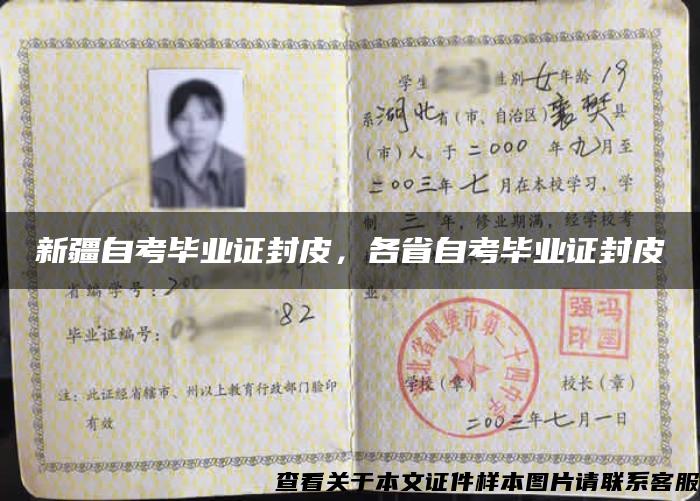 学生 性别女年龄19
系湖北省(市、自治区)襄樊县
(市)人。于二〇〇〇年九月至
二〇〇三年七月在本校学习,学
制三年,修业期满,经学校考
新疆自考毕业证封皮,各省自考毕业证封皮
业。
省编学号:200
毕业证编号:03 82
注:此证经省辖市、州以上教育行政部门验印
有效
北省襄樊市第二十四中
冯国
强印
学校(章) 校长(章)
二〇〇三年七月一日
查看关于本文证件样本图片请联系客服